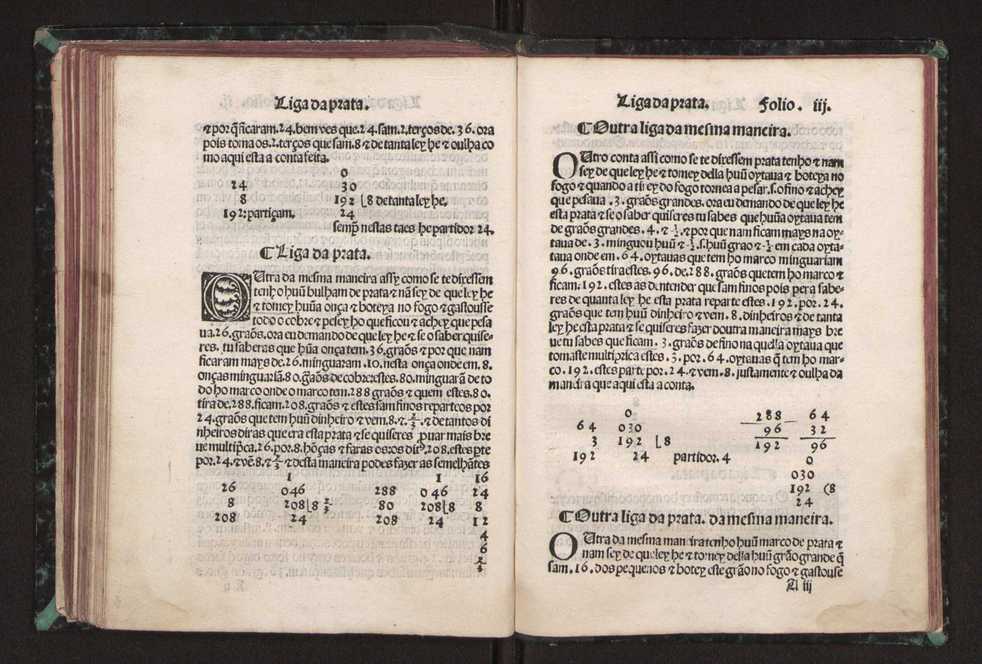 Liga da prata.
⁊ por q̃ ficaram.24.bem ves que.24.sam.2.terços de.36.ora
pois toma os.2.terços que sam.8 ⁊ de tanta ley he ⁊ oulha co
mo aqui esta a conta feita.
0
24 30
8 192 ⌊8 de tanta ley he.
192: partiçam. 24
semp̃ nestas taes he partidor 24.
¶ Liga da prata.
Utra da mesma maneira assy como se te dixessem
tenho huũ bulham de prata ⁊ nã sey de que ley he
⁊ tomey huũa onça ⁊ botey a no fogo ⁊ gastousse
todo o cobre ⁊ pesey ho que ficou ⁊ achey que pesa
ua.26.graõs.ora eu demando de que ley he ⁊ se o saber quise-
res. tu saberas que hũa onça tem.36.graõs ⁊ por que nam
ficaram mays de.26.minguaram.10.nesta onça onde em.8.
onças minguariã.80.graõs de cobre:estes.80.minguarã de to
do ho marco onde o marco tem.288 graõs ⁊ quem estes.80.
tira de.288.ficam.208.graõs ⁊ estes sam finos reparte os por
24.graõs que tem huũ dinheiro ⁊ vem.8.⁊.⅔.⁊ de tantos di
nheiros diras que era esta prata ⁊ se quiseres puar mais bre
ue multip̃ca.26.por.8.hõças ⁊ faras os ros dir9.208.estes pte
por.24.⁊ vẽ.8.⁊ ⅔ ⁊ desta maneira podes fazer as semelhãtes
1 1 16
26 046 288 046 24
8 208⌊8 ⅔ 80 208⌊8 8
208 24 208 24 12
4
6
⅔
Liga da prata. Folio. iij.
¶ Outra liga da mesma maneira.
OUtro conta assi como se te dixessem prata tenho ⁊ nam
sey de que ley he ⁊ tomey della huũ oytaua ⁊ botey a no
fogo ⁊ quando a tirey do fogo tornea a pesar.s.o fino ⁊ achey
que pesaua .3.graõs grandes. ora eu demando de que ley he
esta prata ⁊ se o saber quiseres tu sabes que huũa oytaua tem
de graõs grandes. 4.⁊ ½.⁊ por que nam ficam mays na oy-
taua de. 3. mingou huũ ⁊ ½.s.huũ grao ⁊ ½ em cada oyta-
taua onde em 64.oytauas que tem ho marco minguariam
96.graõs tira estes.96.de.288.graõs que tem ho marco ⁊
ficam.192.estes as de ntender que sam finos pois pera sabe-
res de quanta ley he esta prata reparte estes.192.por.24.
graõs que tem huũ dinheiro ⁊ vem.8.dinheiros ⁊ de tanta
ley he esta prata ⁊ se quiseres fazer doutra maneira mays bre
ue tu sabes que ficam.3.graõs de fino na quella oytaua que
tomaste multiprica estes.3.por.64.oytauas q̃ tem ho mar-
co.192.estes parte por.24.⁊ vem.8.justamente ⁊ oulha da
maneira que aqui esta a conta.
0 288 64
64 030 96 32
3 192 ⌊8 192 96
192 24 partidor.4 0
030
192 (8
24
¶ Outra liga da prata. da mesma maneira.
OUtra da mesma maneira tenho huũ marco de prata ⁊
nam sey de que ley he ⁊ tomey della huũ grão grande q̃
sam.16.dos pequenos ⁊ botey este grão no fogo ⁊ gastouse
A iij